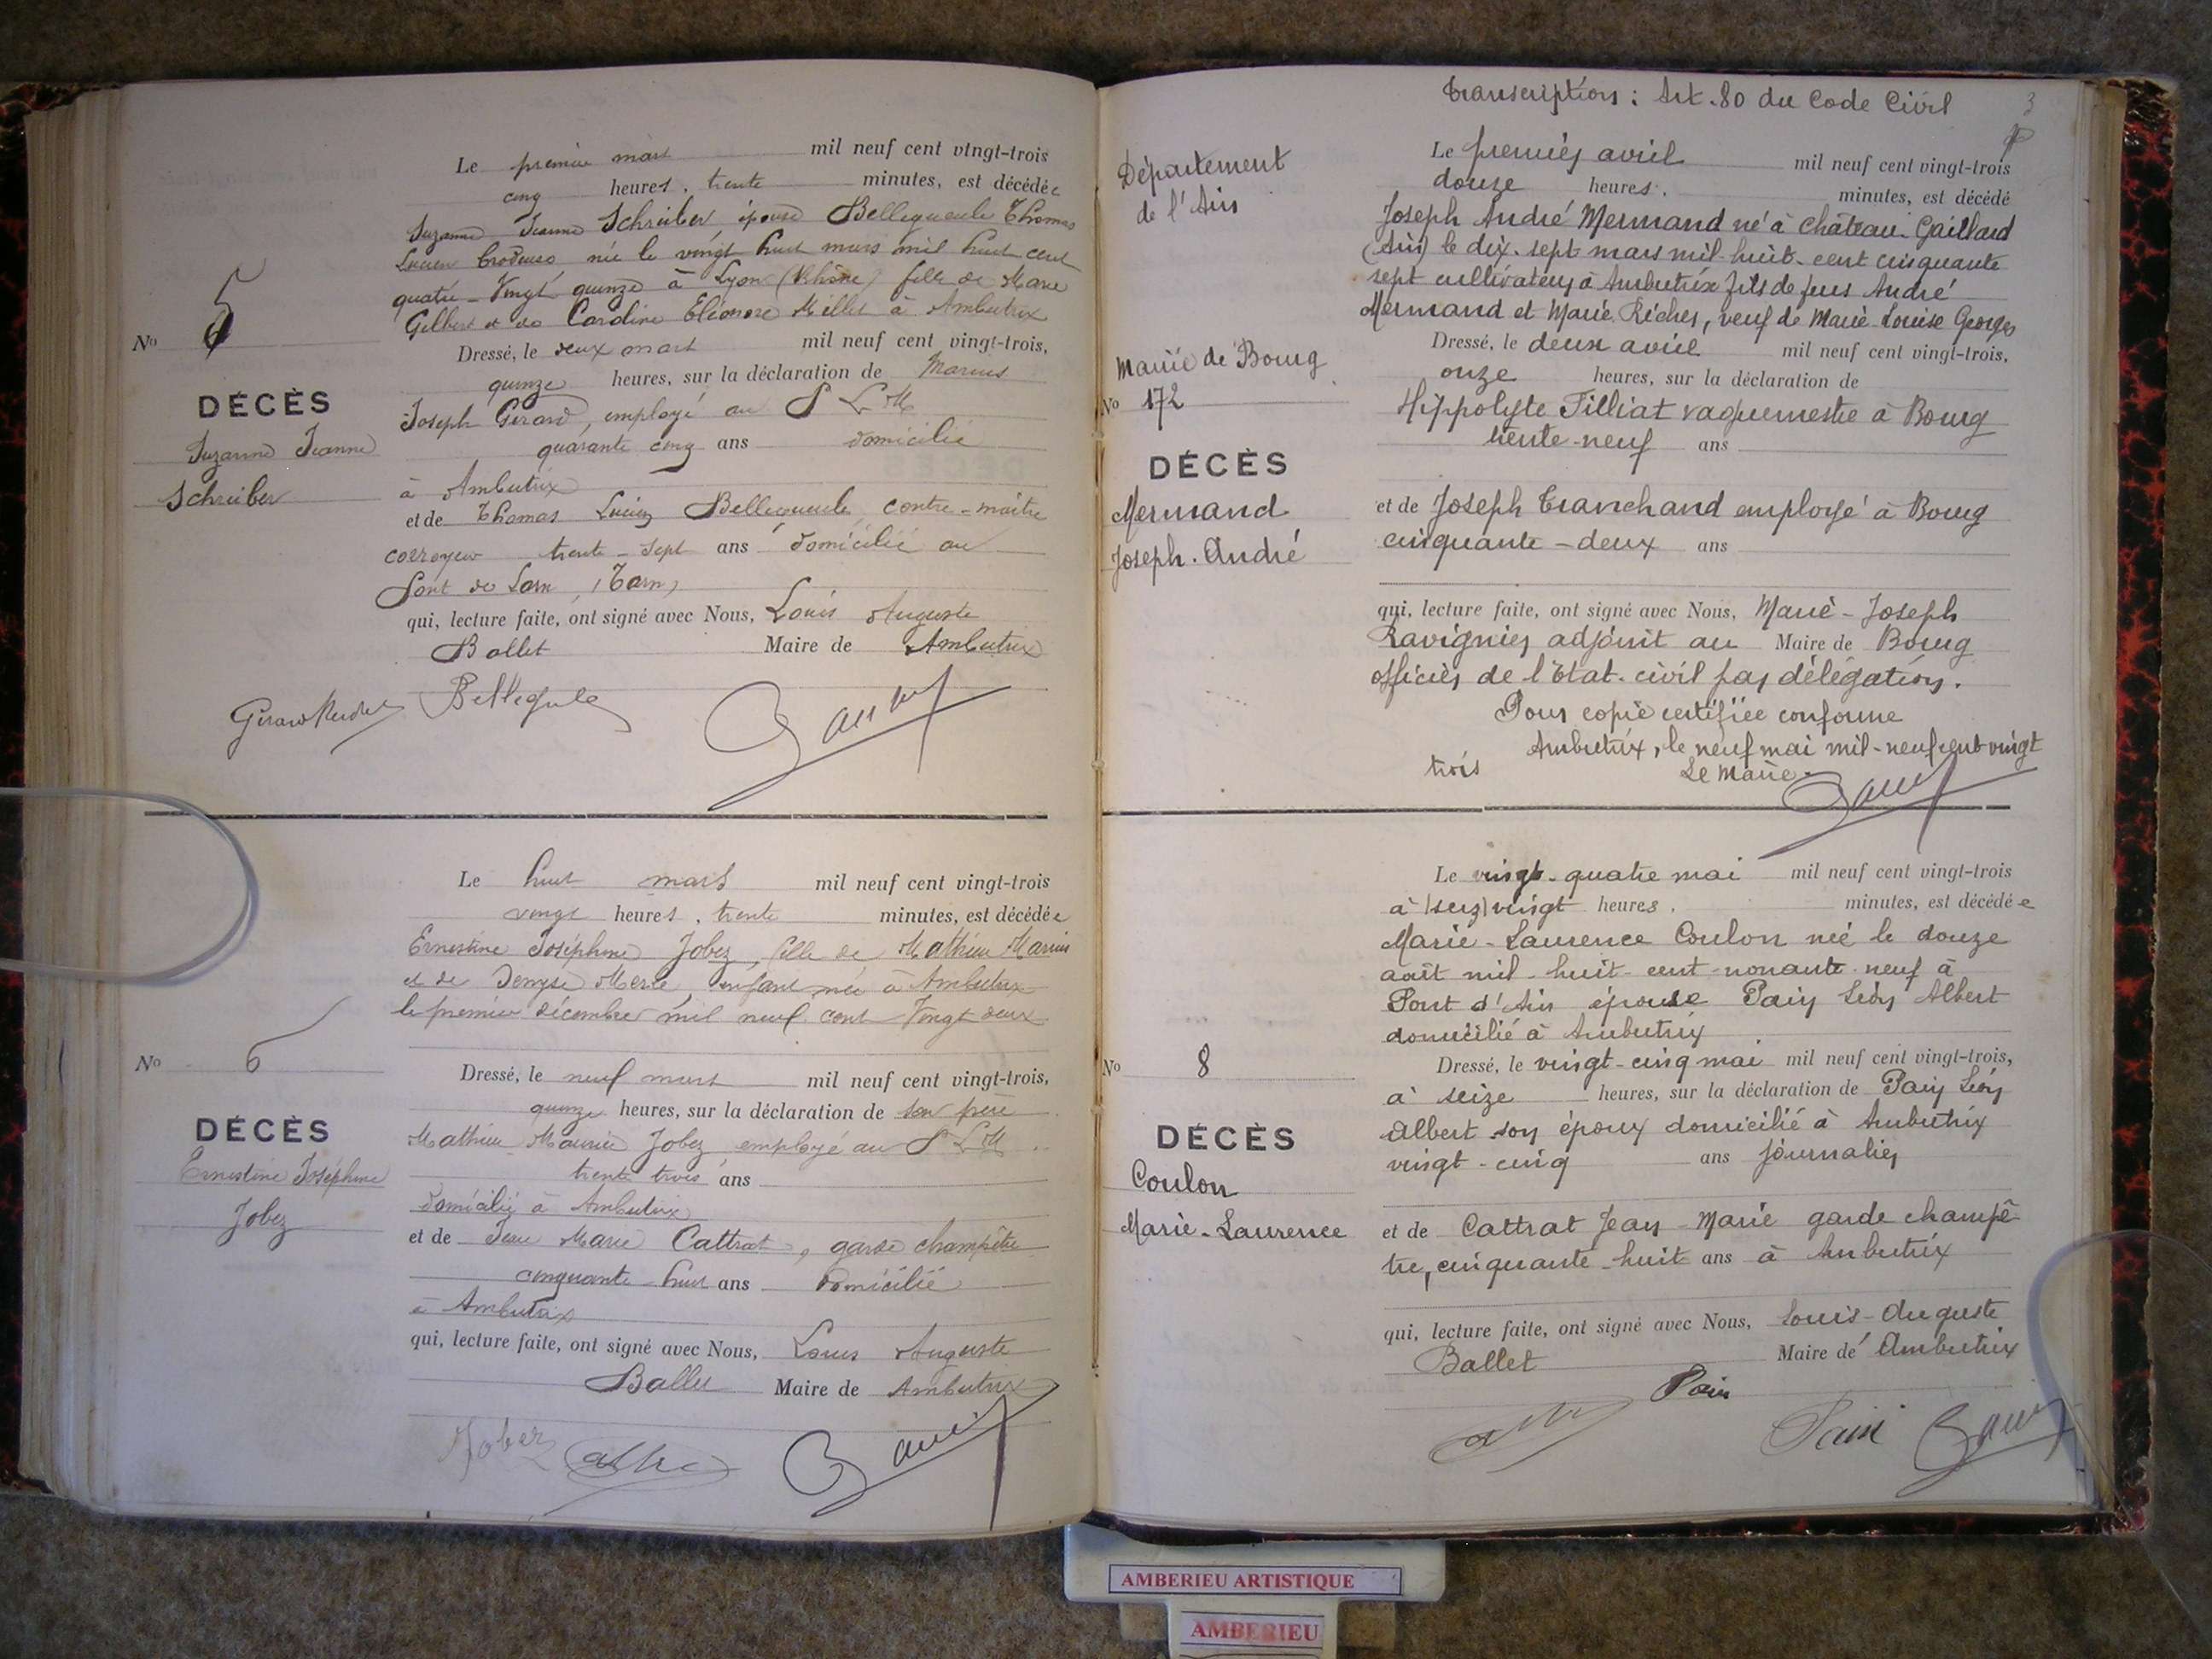 Le premier mars mil neuf cent vingt-trois
cinq heures, trente minutes, est décédée
Suzanne Jeanne Schreiber épouse Bellegueule Thomas
Lucien brodeuse née le vingt huit mars mil huit cent
quatre-vingt quinze à Lyon (Rhône) fille de Marie
Gilbert et de Caroline Eléonore Millet à Ambutrix
Nº 5
Dressé, le deux mars mil neuf cent vingt-trois,
quinze heures, sur la déclaration de Marius
DÉCÈS
Suzanne Jeanne
Schreiber
Joseph Girard, employé au P L M
quarante cinq ans domicilié
à Ambutrix
et de Thomas Lucien Bellegueule contre-maître
corroyeur trente-sept ans domicilié au
Pont de Larn, (Tarn)
qui, lecture faite, ont signé avec Nous, Louis Auguste
Ballet Maire de Ambutrix
Bellegule
Le huit mars mil neuf cent vingt-trois
vingt heures, trente minutes, est décédée
Ernestine Joséphine Jobez, fille de Mathieu Marius
et de Denyse Merle, enfant née à Ambutrix
le premier décembre mil neuf cent vingt deux
Nº 6
Dressé, le neuf mars mil neuf cent vingt-trois,
quinze heures, sur la déclaration de son père
DÉCÈS
Ernestine Joséphine
Jobez
Mathieu Jobez employé au P L M
trente trois ans
domicilié à Ambutrix
et de Jean Marie Cattrat, garde champêtre
cinquante-huit ans domicilié
à Ambutrix
qui, lecture faite, ont signé avec Nous, Louis Auguste
Ballet Maire de Ambutrix
Jobez
Transcription : Art. 80 du Code Civil 3
Département
de l'Ain
Le premier avril mil neuf cent vingt-trois
douze heures. minutes, est décédé
Joseph André Mermand né à Château-Gaillard
(Ain) le dix-sept mars mil-huit-cent cinquante
sept cultivateur à Ambutrix fils de feus André
Mermand et Marie Richer, veuf de Marie-Louise Georges
Mairie de Bourg
Nº 172
Dressé, le deux avril mil neuf cent vingt-trois,
onze heures, sur la déclaration de
Hippolyte Filliat vaguemestre à Bourg
trente-neuf ans
DÉCÈS
Mermand
Joseph-André
et de Joseph Tranchand employé à Bourg
cinquante-deux ans
qui, lecture faite, ont signé avec Nous, Marie-Joseph
Ravignier adjoint au Maire de Bourg
officier de l'État-civil par délégation.
Pour copie certifiée conforme
Ambutrix, le neuf mai mil-neuf cent vingt
trois Le Maire.
Le vingt-quatre mai mil neuf cent vingt-trois
à vingt heures. minutes, est décédée
Marie-Laurence Coulon née le douze
août mil-huit-cent-nonante-neuf à
Pont d'Ain épouse Pain Léon Albert
domicilié à Ambutrix
Nº 8
Dressé, le vingt-cinq mai mil neuf cent vingt-trois,
à seize heures, sur la déclaration de Pain Léon
DÉCÈS
Coulon
Marie-Laurence
Albert son époux domicilié à Ambutrix
vingt-cinq ans journalier
et de Cattrat Jean-Marie garde champê-
tre, cinquante-huit ans à Ambutrix
qui, lecture faite, ont signé avec Nous, Louis-Auguste
Ballet Maire de Ambutrix
Pain
Pain
AMBERIEU ARTISTIQUE
AMBERIEU